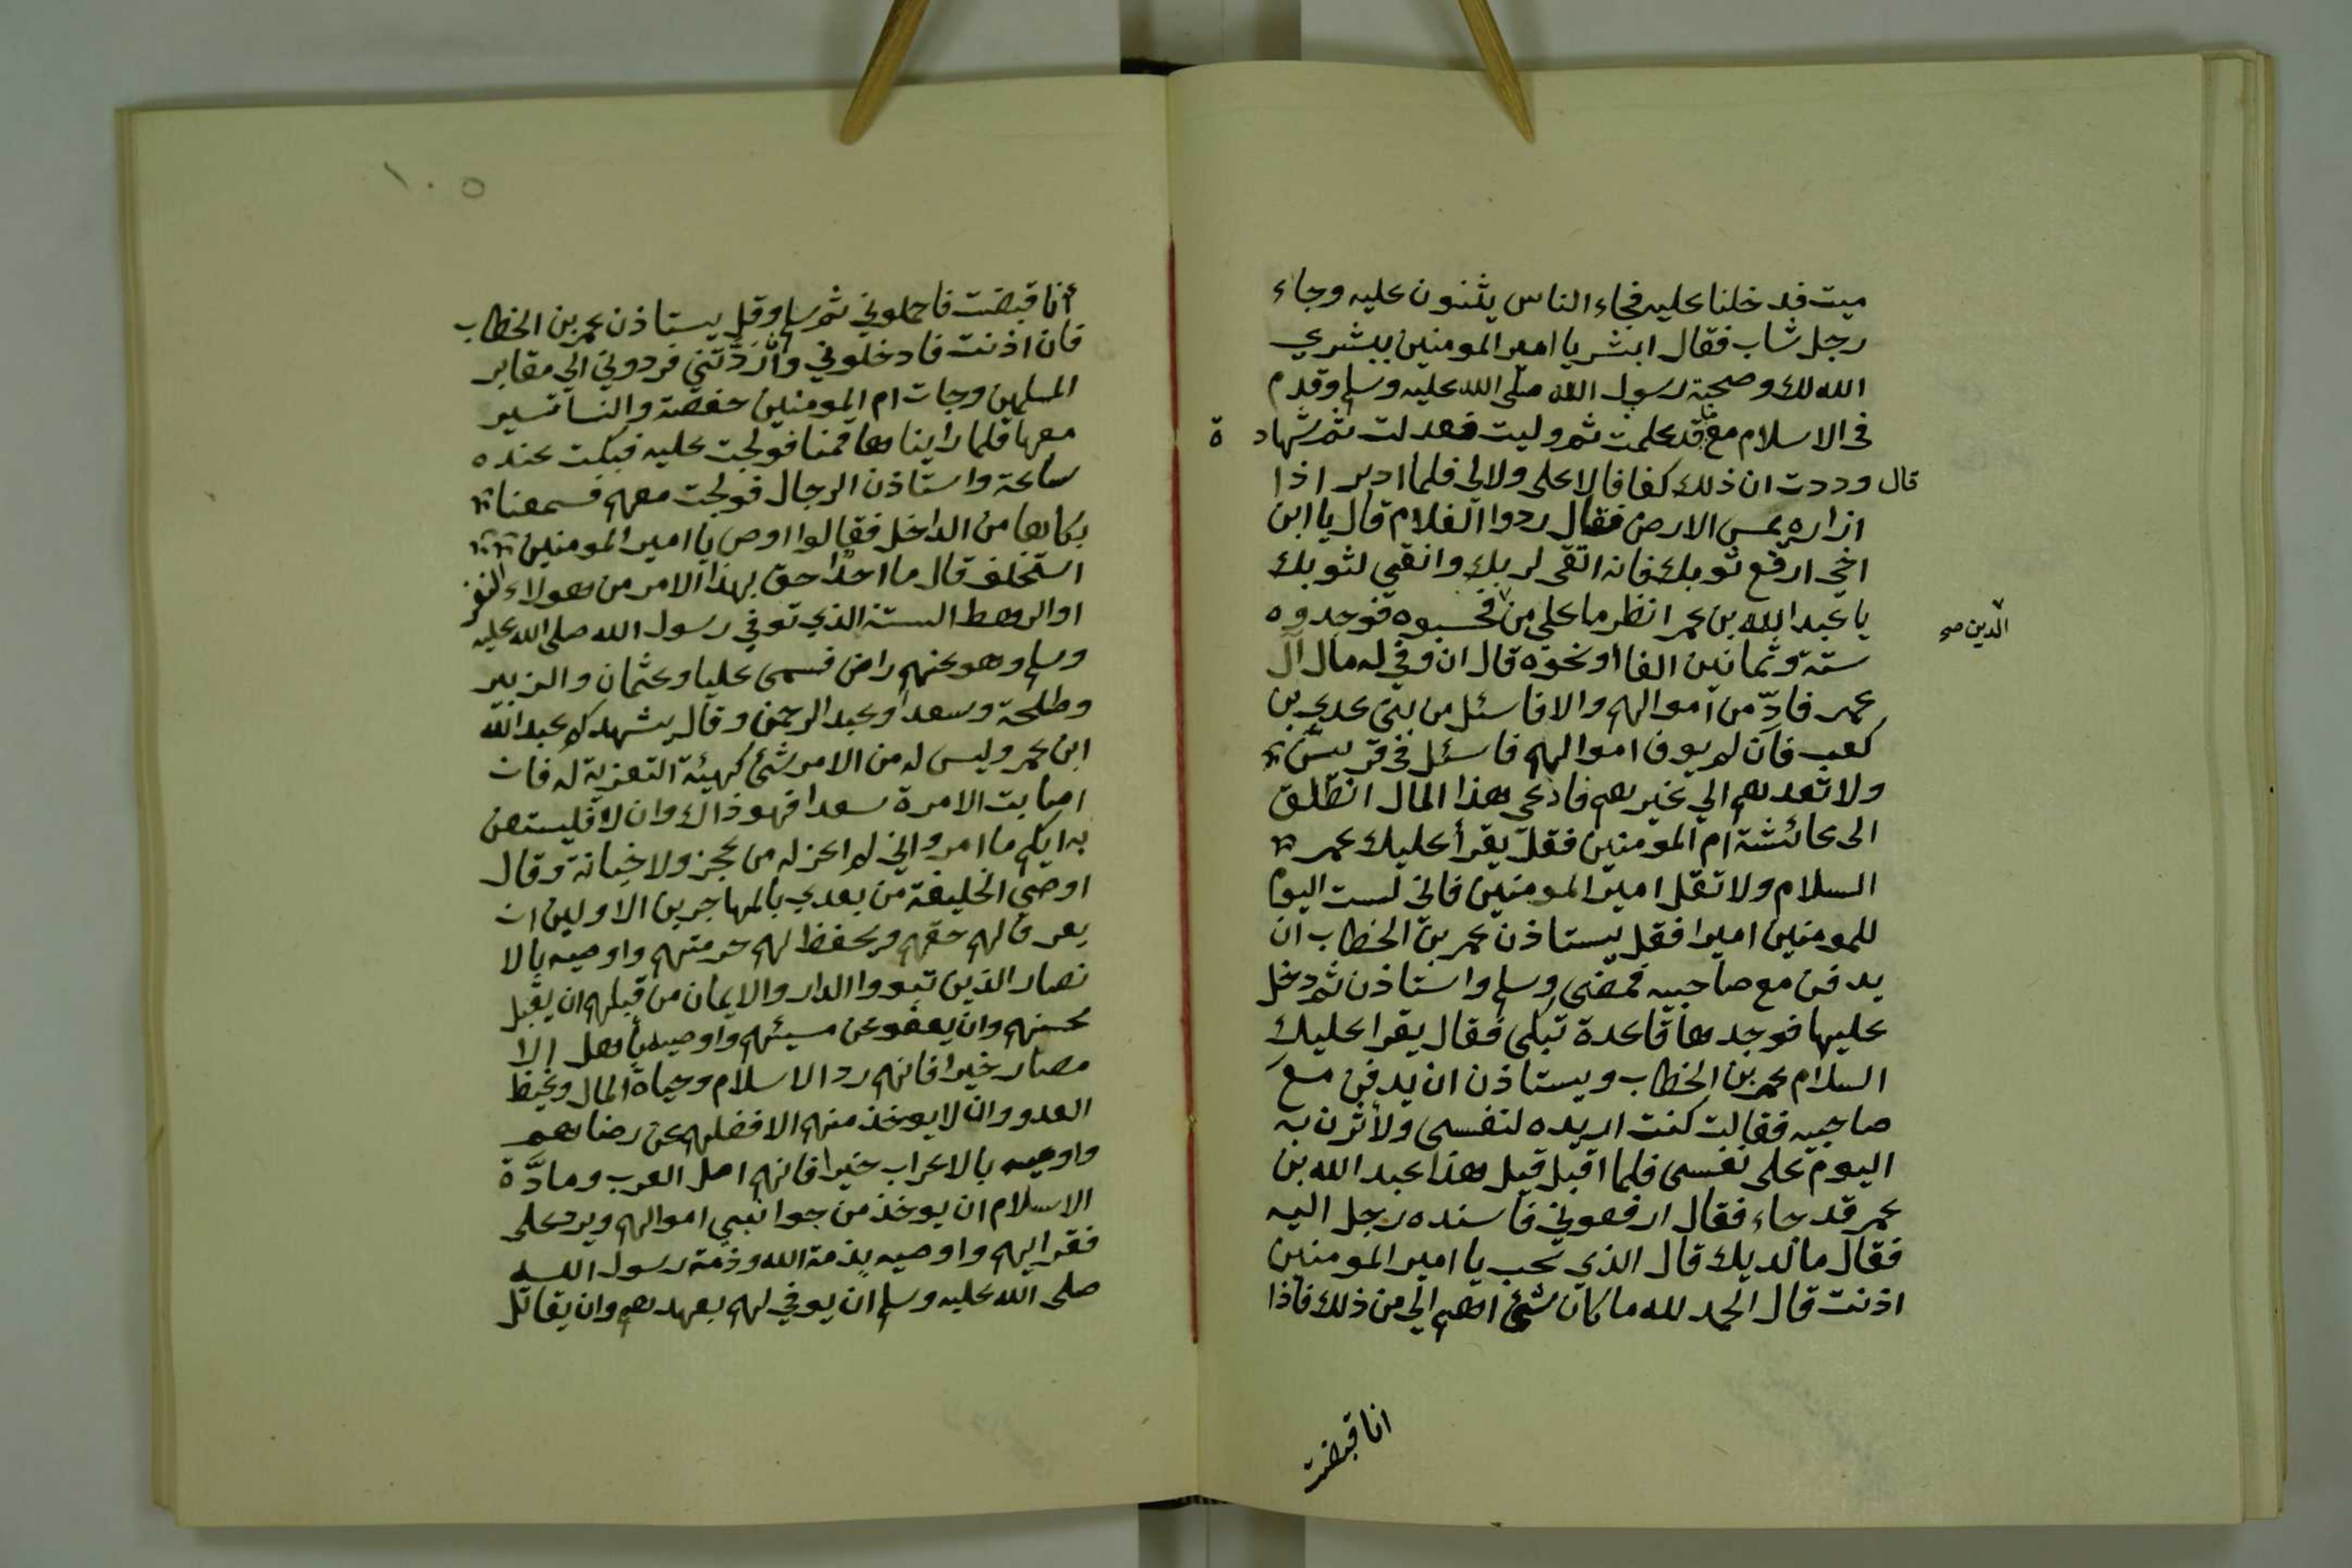 ميت فدخلنا عليه فجاء الناس يثنون عليه وجاء
رجل شاب فقال ابشر يا امير المومنين ببشري
الله لك وصحبة رسول الله صلى الله عليه وسلم وقدم
في الاسلام ما قد علمت ثم وليت فعدلت ثم شهادة
قال وددت ان ذلك كفافا لا على ولا لي فلما ادبر اذا
ازاره يمس الارض فقال ردوا الغلام قال يا ابن
اخي ارفع ثوبك فانه اتقى لربك وانقى لثوبك
يا عبد الله بن عمر انظر ما علي من فحسبوه فوجدوه
الدين صح
ستة وثمانين الفا او نحوه قال ان وفي له مال آل
عمر فادّ من اموالهم والا فاسئل من بني عدي بن
كعب فان لم يوف اموالهم فاسئل في قريش
ولا تعدهم الي غيرهم فادعى هذا المال انطلق
الى عائشة ام المومنين فقل يقرأ عليك عمر
السلام ولا تقل امير المومنين فاني لست اليوم
للمومنين اميرا فقل يستاذن عمر بن الخطاب ان
يدفن مع صاحبيه فمضى وسلم واستاذن ثم دخل
عليها فوجدها قاعدة تبكى فقال يقرا عليك
السلام عمر بن الخطاب ويستاذن ان يدفن مع
صاحبيه فقالت كنت اريده لنفسى ولأثرن به
اليوم على نفسى فلما اقبل قيل هذا عبد الله بن
عمر قد جاء فقال ارفعوني فاسنده رجل اليه
فقال ما لديك قال الذي تحب يا امير المومنين
اذنت قال الحمد لله ما كان شئ اهم الي من ذلك فاذا
انا قبضت
١٠٥
أنا قبضت فاحملوني ثم سلم وقل يستاذن عمر بن الخطاب
فان اذنت فادخلوني وان ردّتني فردوني الي مقابر
المسلمين وجات ام المومنين حفصة والنسا تسير
معها فلما رايناها قمنا فولجت عليه فبكت عنده
ساعة واستاذن الرجال فولجت معهم فسمعنا
بكاها من الداخل فقالوا اوص يا امير المومنين
استخلف قال ما احدا حق بهذا الامر من هولاء النفر
او الرهط الستة الذي توفي رسول الله صلى الله عليه
وسلم وهو عنهم راض فسمى عليا وعثمان والزبير
وطلحة وسعدا وعبد الرحمن وقال يشهدكم عبد الله
ابن عمر وليس له من الامر شئ كهيئة التعزية له فان
اصابت الامرة سعدا فهو ذاك وان لا فليستعن
به ايكم ما امر واني لم اعزله من عجز ولا خيانة وقال
اوصي الخليفة من بعدي بالمهاجرين الاولين ان
يعرف لهم حقهم ويحفظ لهم حرمتهم واوصيه بالا
نصار الذين تبووا الدار والايمان من قبلهم ان يقبل
محسنهم وان يعفو عن مسيئهم واوصيه باهل الا
مصار خيرا فانهم ردا الاسلام وجباة المال وغيظ
العدو وان لا يوخذ منهم الا فضلهم عن رضاهم
واوصيه بالاعراب خيرا فانهم اصل العرب ومادّة
الاسلام ان يوخذ من حواشي اموالهم ويرد على
فقرايهم واوصيه بذمة الله وذمة رسول الله
صلى الله عليه وسلم ان يوفي لهم بعهدهم وان يقاتل